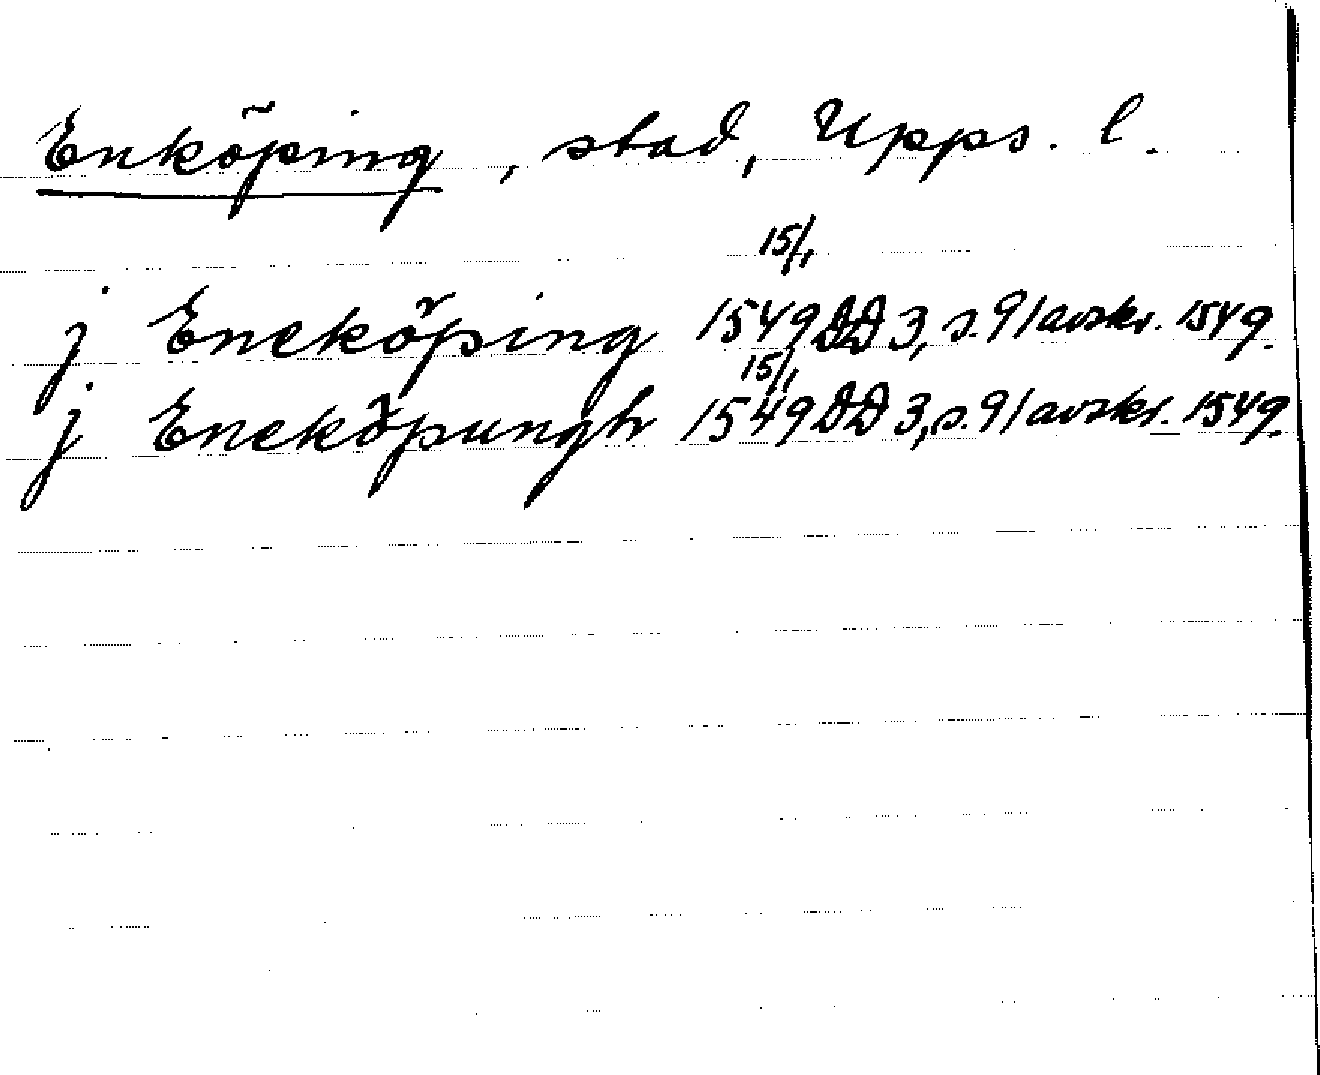 Enköping, stad, Upps. l.
15/1
j Encköping 1549 DD 3, s. 91 avskr. 1549.
15/1
j Encköpungh 1549 DD 3, s. 91 avskr. 1549.